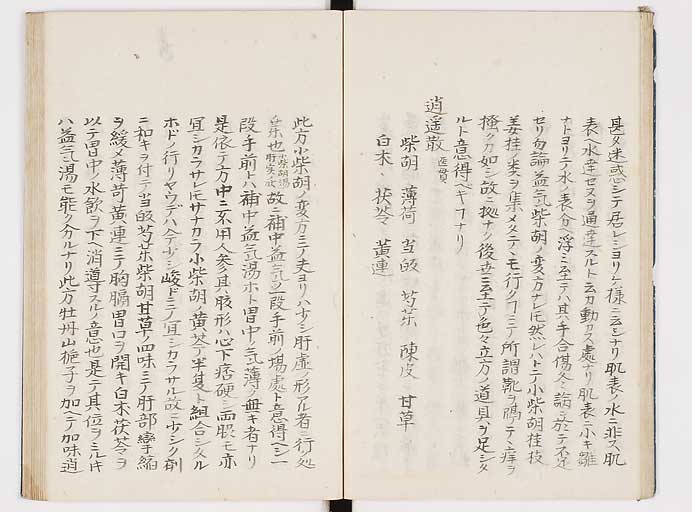 甚タ迷惑シテ居レシヨリケ様ニ云シナリ肌表ノ水ニ非ス肌
表ヘ水達セスヲ通達スルト云カ動カス處ナリ肌表ニ小キ雖
ナトヨリテ水ノ表分ヘ浮ミ至テハ其手合傷冬ノ論ニ於テ不足
セリ勿論益氣柴胡ノ変方ナレ𪜈然レハトテ小柴胡桂枝
姜桂ノ类ヲ集メタテモ行クフニテ所謂靴ヲ隔テヽ痒ヲ
搔クカ如シ故ニ拠ナク後世ニ云主テ色々立方ノ道具ヲ足シタ
ルト意得ヘキフナリ
逍遥散 医貫
柴胡 薄荷 当皈 芍茱 陳皮 甘草
白朮 茯苓 黄連
此方小柴胡ノ変方ニテノ夫ヨリハ少シ肝虚ノ形アル者ニ行処
茱也 故ニ補中益氣ヲ一段手前ノ場處ト意得ヘシ一
段手前トハ補中益氣湯ホト胃中ノ氣薄ノ無キ者ナリ
是依テ方中ニ不用人参其腹形ハ心下痞硬ニ而脹モ亦
冝シカラサレ𪜈サナカラ小柴胡ノ黄芩半夏ト組合シタル
ホドノ行リヤウテハヘテ少シ峻ドニテノ冝シカラサル故ニ少シク剤
ニ和キヲ付テ当皈芍茱柴胡甘草ノ四味ニテノ肝部挛縮
ヲ緩メ薄荷黄連ニテノ胸膈胃口ヲ開キ白朮茯苓ヲ
以テ胃中ノ水飲ヲ下ヘ消導スルノ意也是ニテ其位ヲミルキ
ハ益氣湯モ能ク分ルナリ此方牡丹山梔子ヲ加ヘテ加味逍